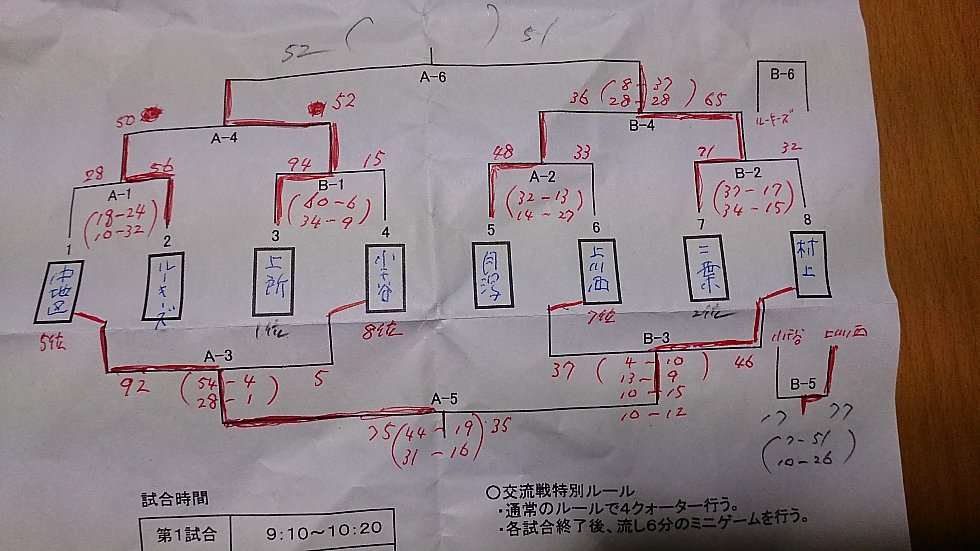 52 ( ) 51
A-6
B-6
ルーキーズ
50 52
A-4
36 (8-37 28-28) 65
B-4
28 56
A-1
(18-24
10-32)
94 15
B-1
(60-6
34-9)
48 33
A-2
(32-13
14-27)
71 32
B-2
(37-17
34-15)
1 2 3 4 5 6 7 8
沖地区 ルーキーズ 上所 小千谷 月潟 上川西 二葉 村上
5位 1位 8位 7位 2位
A-3
92 (54-4 28-1) 5
B-3
37 ( 4-10 ) 46
13-9
10-15
10-12
小千谷 上川西
B-5
17 77
(7-51
10-26)
A-5
75 (44-19) 35
(31-16)
試合時間
第1試合 9:10～10:20
○交流戦特別ルール
・通常のルールで4クォーター行う。
・各試合終了後、流し6分のミニゲームを行う。